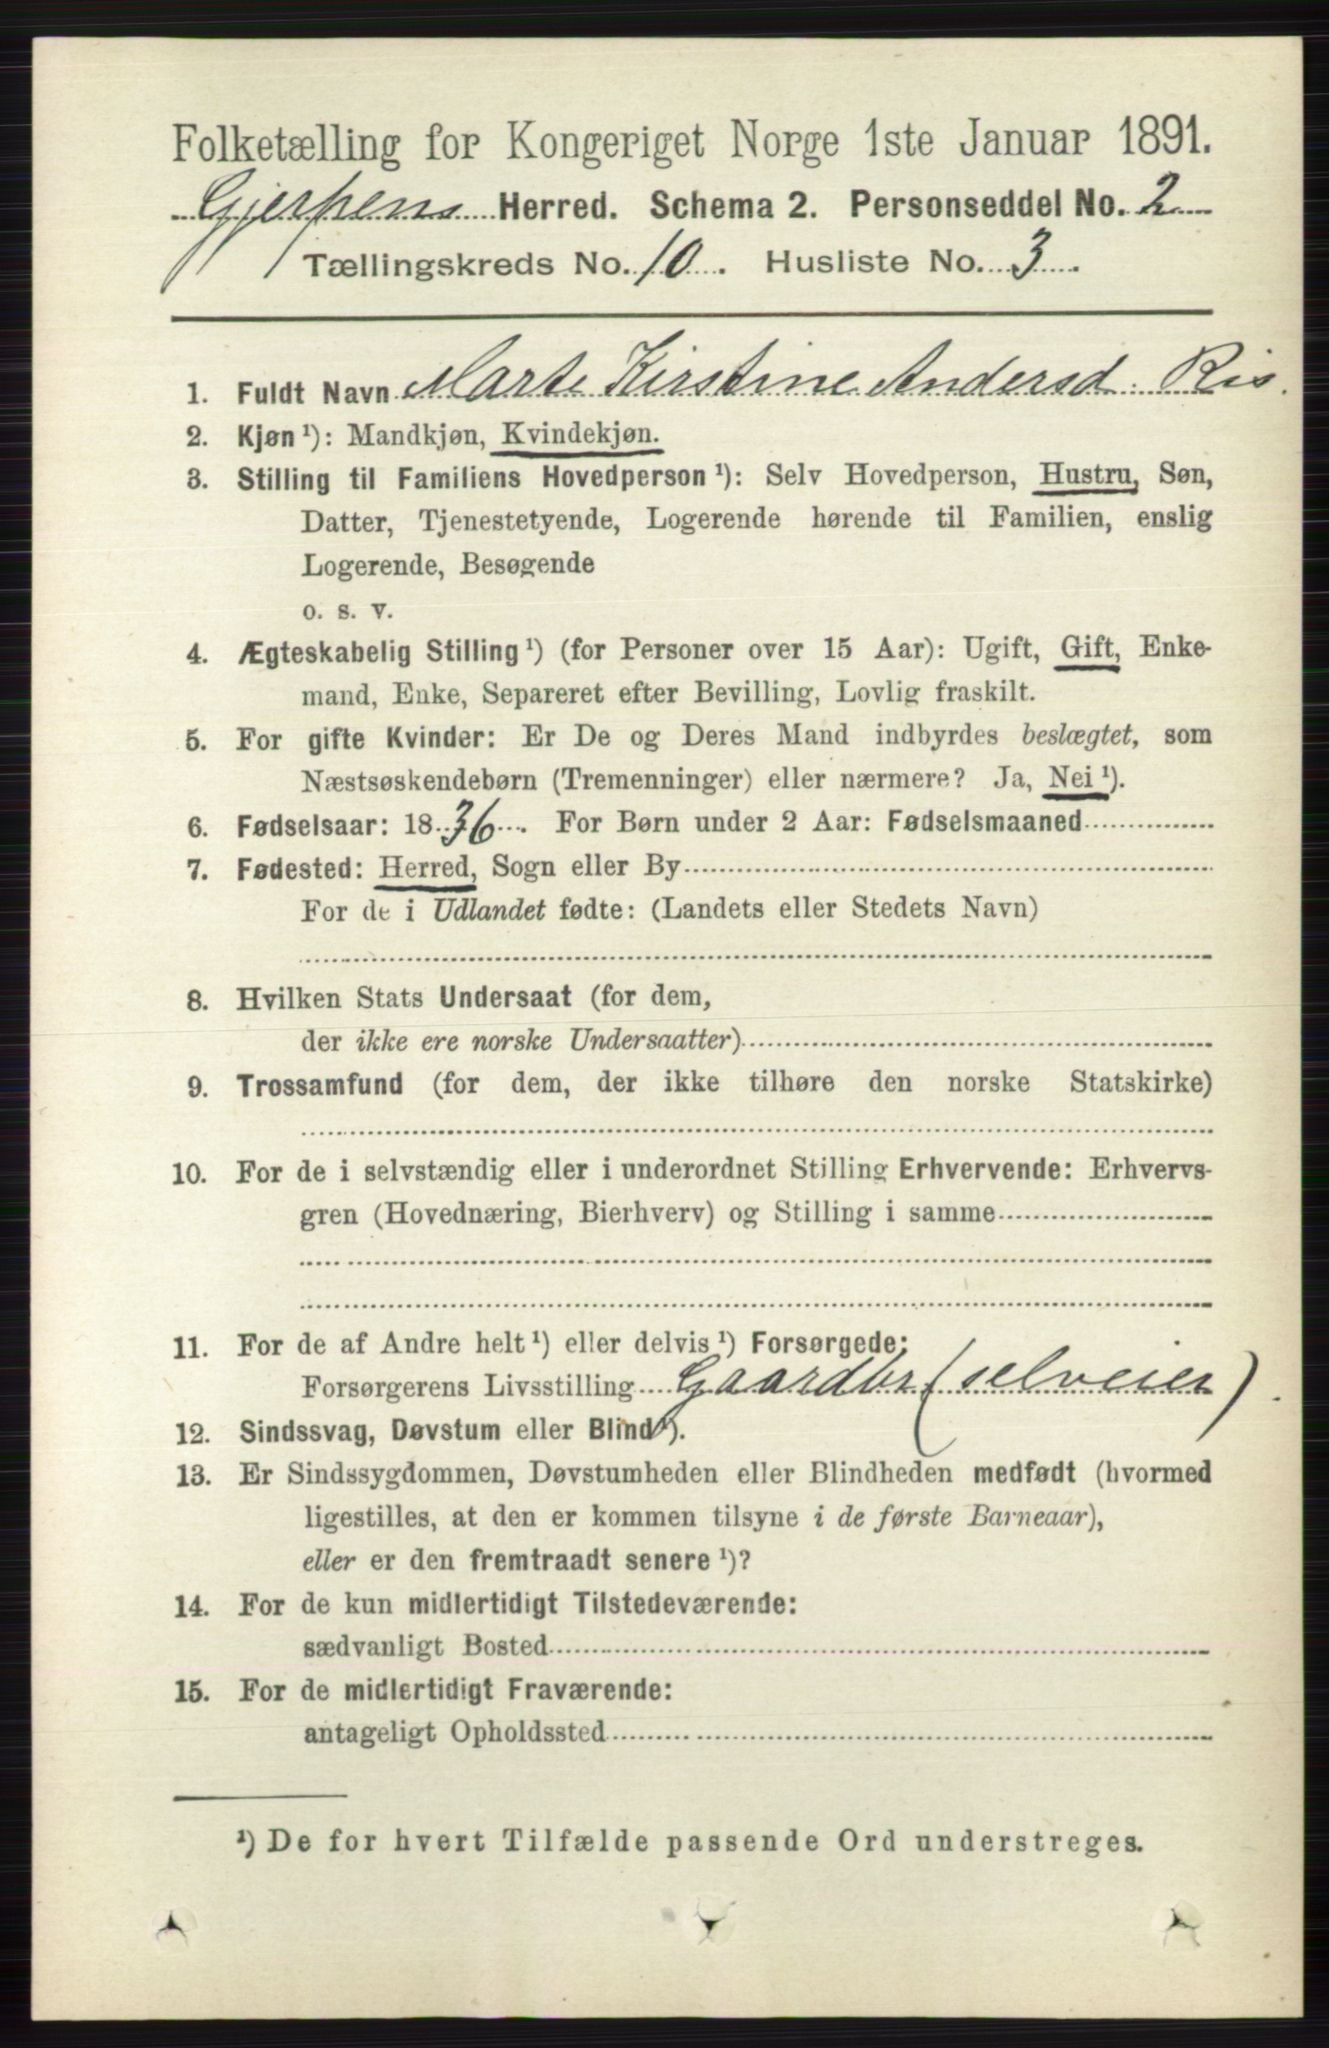 Folketælling for Kongeriget Norge 1ste Januar 1891.
Gjerpens Herred. Schema 2. Personseddel No. 2
Tællingskreds No. 10. Husliste No. 3.
1. Fuldt Navn Marte Kirstine Andersd Ris.
2. Kjøn ¹): Mandkjøn, Kvindekjøn.
3. Stilling til Familiens Hovedperson ¹): Selv Hovedperson, Hustru, Søn,
Datter, Tjenestetyende, Logerende hørende til Familien, enslig
Logerende, Besøgende
o. s. v.
4. Ægteskabelig Stilling ¹) (for Personer over 15 Aar): Ugift, Gift, Enke-
mand, Enke, Separeret efter Bevilling, Lovlig fraskilt.
5. For gifte Kvinder: Er De og Deres Mand indbyrdes beslægtet, som
Næstsøskendebørn (Tremenninger) eller nærmere? Ja, Nei ¹).
6. Fødselsaar: 1836. For Børn under 2 Aar: Fødselsmaaned
7. Fødested: Herred, Sogn eller By
For de i Udlandet fødte: (Landets eller Stedets Navn)
8. Hvilken Stats Undersaat (for dem,
der ikke ere norske Undersaatter)
9. Trossamfund (for dem, der ikke tilhøre den norske Statskirke)
10. For de i selvstændig eller i underordnet Stilling Erhvervende: Erhvervs-
gren (Hovednæring, Bierhverv) og Stilling i samme
11. For de af Andre helt ¹) eller delvis ¹) Forsørgede:
Forsørgerens Livsstilling Gaardbr (selveier).
12. Sindssvag, Døvstum eller Blind ¹).
13. Er Sindssygdommen, Døvstumheden eller Blindheden medfødt (hvormed
ligestilles, at den er kommen tilsyne i de første Barneaar),
eller er den fremtraadt senere ¹)?
14. For de kun midlertidigt Tilstedeværende:
sædvanligt Bosted
15. For de midlertidigt Fraværende:
antageligt Opholdssted
¹) De for hvert Tilfælde passende Ord understreges.